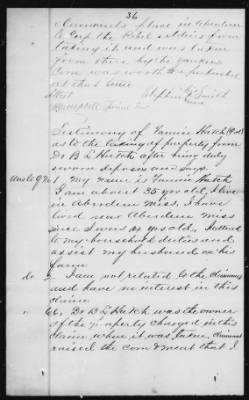 36
Claimants place in
to keep the Rebel soldiers from
taking it and was taken
from there by the yankees
Corn was worth per bushel
at that time
Attest Stephen G Smith

Testimony of Fannie Hatch (Col)
as to the taking of property from
Dr B L Hatch after being duly
sworn deposes and says
Ans to Q No 1. My name is Fannie Hatch
I am about 35 yrs old, I live
in Aberdeen Miss. I have
lived near Aberdeen Miss
since I was yrs old, I attend
to my household duties and
assist my husband on his
farm
do 2 I am not related to the claimant
and have no interest in this
claim
66. Dr B L Hatch was the owner
of the property charged in this
claim when it was taken, claimant
raised the corn & meat that I